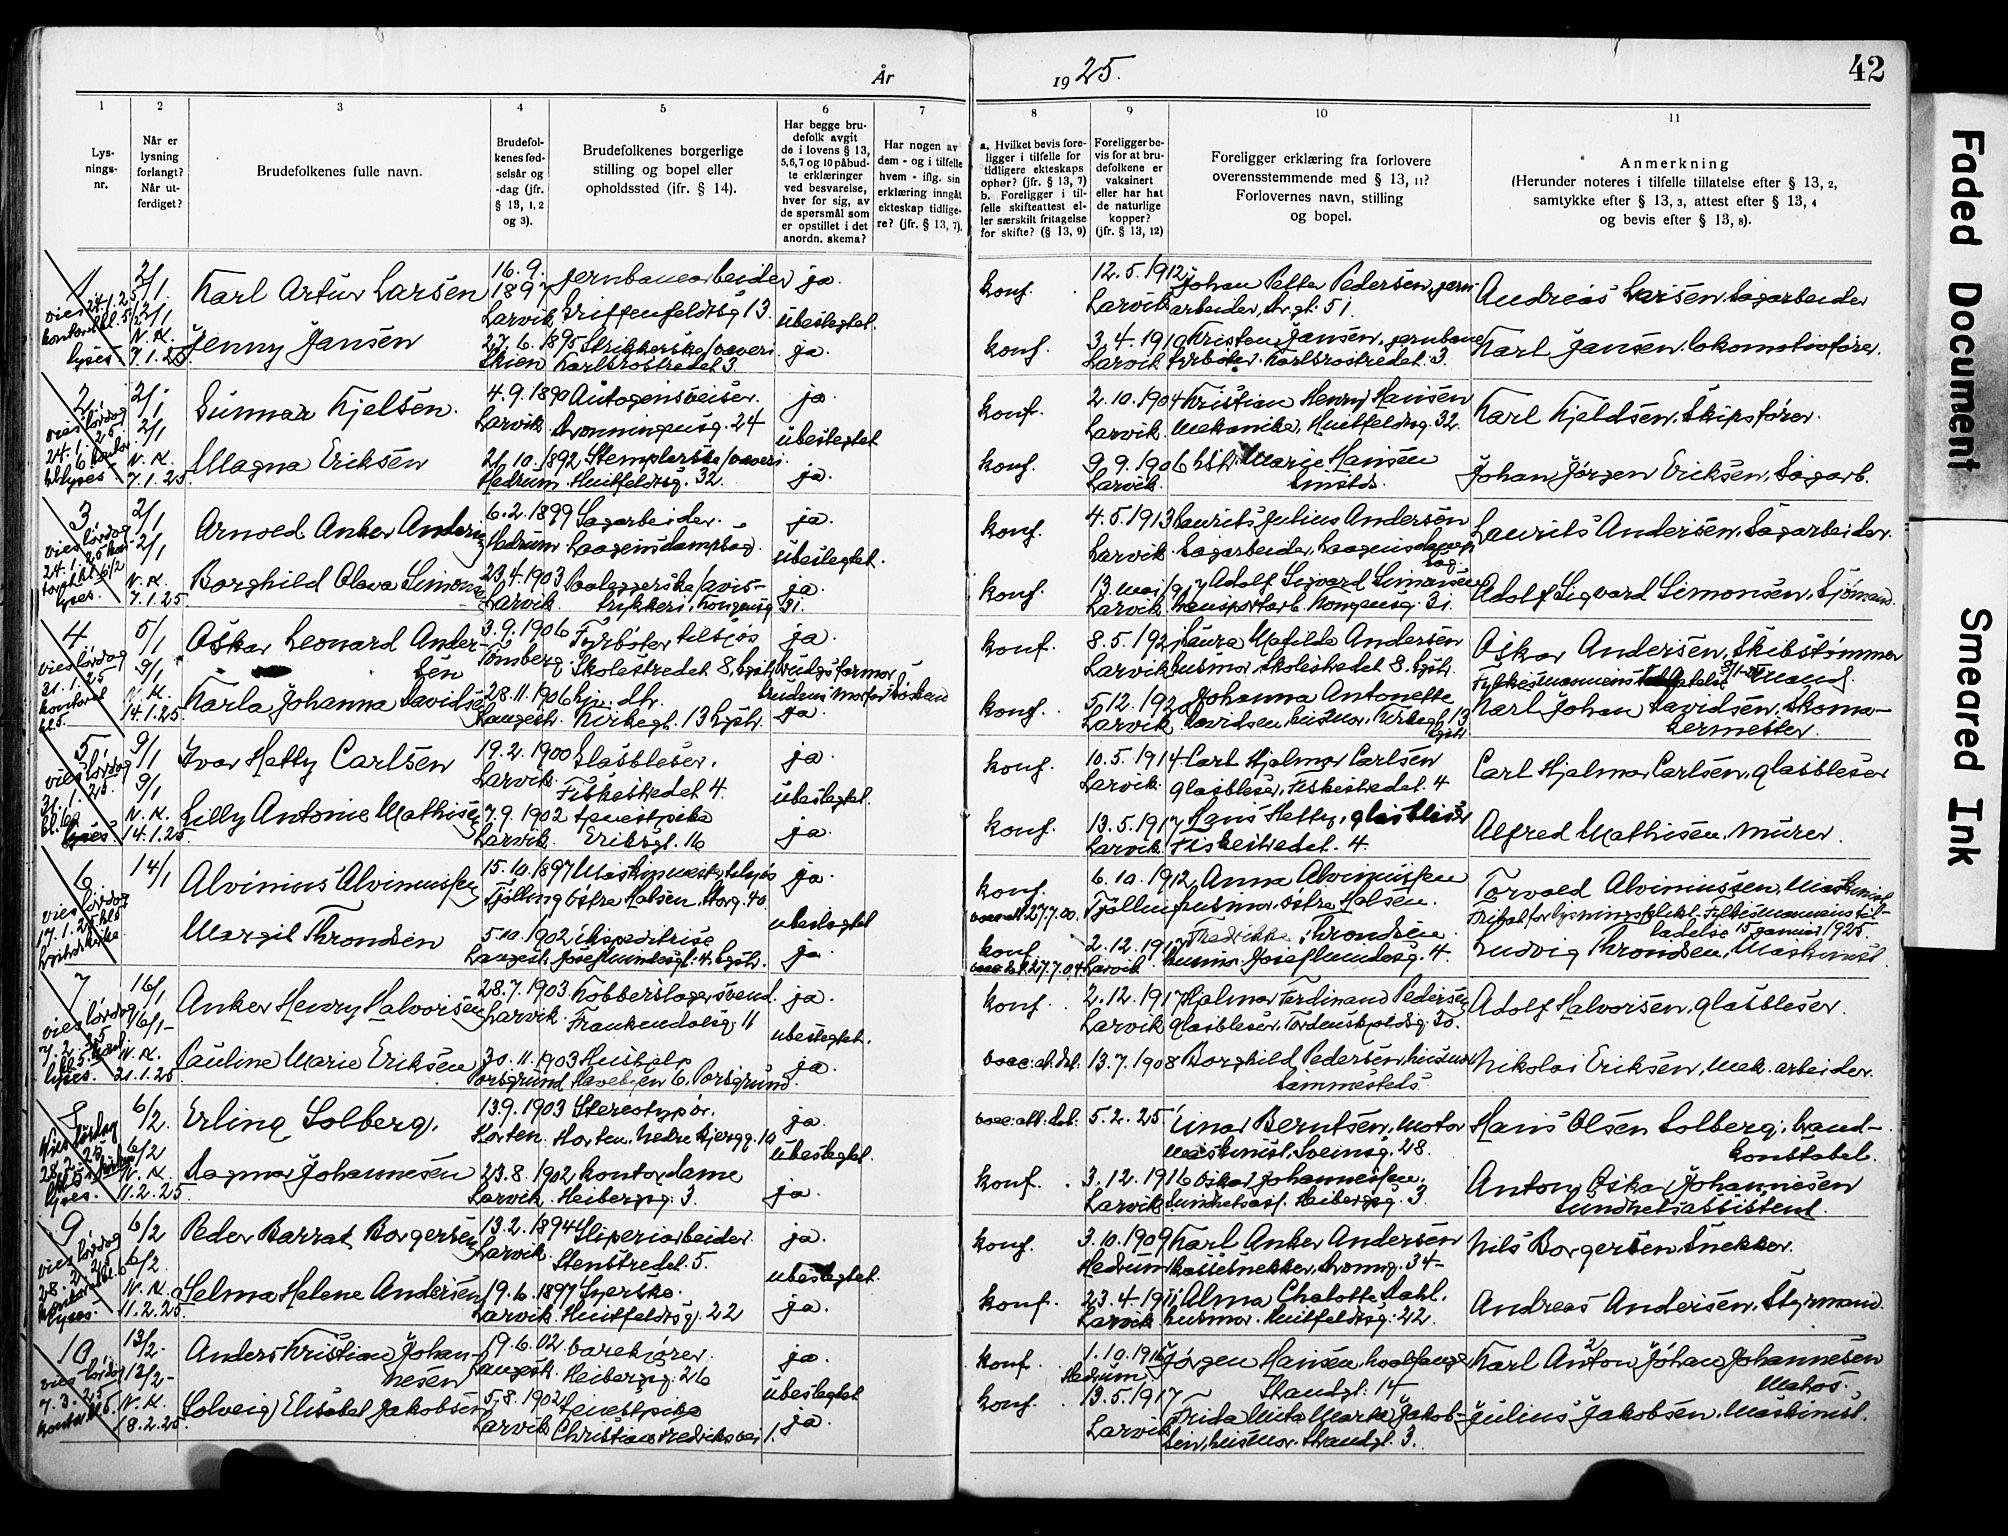 År 1925.
42
1 2 3 4 5 6 7 8 9 10 11
Lys-
nings-
nr.
Når er
lysning
forlangt?
Når ut-
ferdiget?
Brudefolkenes fulle navn.
Brudefol-
kenes fød-
selsår og
-dag (jfr.
§ 13, 1, 2
og 3).
Brudefolkenes borgerlige
stilling og bopel eller
opholdssted (ifr. § 14).
Har begge bru-
defolk avgit
de i lovens § 13,
5, 6, 7 og 10 påbud-
te erklæringer
ved besvarelse,
hver for sig, av
de spørsmål som
er opstillet i det
anordn. skema?
Har nogen av
dem - og i tilfelle
hvem - iflg. sin
erklæring inngåt
ekteskap tidlige-
re? (jfr. § 13, 7).
a. Hvilket bevis fore-
ligger i tilfelle for
tidligere ekteskaps
ophør? (jfr. § 13, 7)
b. Foreligger i til-
felle skifteattest el-
ler særskilt fritagelse
for skifte? (§ 13, 9)
Foreligger be-
vis for at bru-
defolkene er
vaksinert
eller har hat
de naturlige
kopper?
(jfr. § 13, 12)
Foreligger erklæring fra forlovere
overensstemmende med § 13, 11?
Forlovernes navn, stilling
og bopel.
Anmerkning
(Herunder noteres i tilfelle tillatelse efter § 13, 2,
samtykke efter § 13, 3, attest efter § 13, 4
og bevis efter § 13, 8).
1 2/1 Karl Artur Larsen 16.9. 1897 Larvik jernbanearbeider Griffenfeldtsg 13 ja. ubeslegtet.
konf. 12.5.1912 Larvik Johan Petter Pedersen, jern arbeider, 51. Andreas Larsen Sagarbeider
N.K. 7.1.25 Jenny Jansen 27.6.1895 Skien Strikkerske/væveri Karlsrostredet 3 ja.
konf. 3.4.1910 Larvik Kristen Jansen, jernbane fyrbøter Karlsrostredet 3. Karl Jansen, lokomotivfører.
2 2/1 Gunnar Kjelsen. 4.9.1890 Larvik Autogensveiser. Dronningensg. 24 ja. ubeslegtet
konf. 2.10.1904 Larvik. Kristian Henry Hansen Mekaniker, Huitfeldtsg. 32. Karl Kjeldsen, Skipsfører.
N.K. 7.1.25. Magna Eriksen 21.10.1892 Hedrum Stemplerske/væveri. Huitfeldtsg. 32. ja.
konf. 9.9.1906 Larvik. Marie Hansen Johan Jørgen Eriksen, Sagarb.
3 2/1 Arnold Anker Andersen 6.2.1899 Hedrum Sagarbeider. Laagens dampsag. ja. ubeslegtet.
konf. 4.5.1913 Larvik Laurits Julius Andersen Sagarbeider, Laagens dampsag Laurits Andersen, Sagarbeider.
N.K. 7.1.25. Borghild Olava Simonsen 23.4.1903 Larvik. Paaleggerske/avis- trykkeri, Kongensg 31. ja.
konf. 13. mai 1917 Larvik Adolf Sigvard Simonsen transportarb. Kongensg. 31. Adolf Sigvard Simonsen, Sjømand.
4 5/1 9/1 Oskar Leonard Ander- sen 3.9.1906 Tønsberg. Fyrbøter tilsjøs Skolestredet 8, Lgstr. ja.
konf. 8.5.1921 Larvik Laura Matilde Andersen husmor, Skolestredet 8. Lgstr. Oskar Andersen, Skibstømmermand.
N.K. 14.1.25. Karla Johanna Davidsen 28.11.1906 Langestr. hjv. dtr. Kirkegt. 13 Lgstr. ja.
konf. 5.12.1920 Larvik Johanna Antonette Davidsen, husmor, Kirkegt. 13 Lgstr Karl Johan Davidsen, Skoma- kermester.
5 9/1 9/1 Ivar Hetty Carlsen 19.2.1900 Larvik. Glasbleser. Fiskestredet 4. ja. ubeslegtet.
konf. 10.5.1914 Larvik. Carl Hjalmar Carlsen glasbleser, Fiskestredet. 4 Carl Hjalmar Carlsen, glasbleser
N.K. 14.1.25. Lilly Antonie Mathisen 7.9.1902 Larvik. tjenestpike Eriksgt. 16 ja.
konf. 13.5.1917 Larvik Hans Hetty, glasbleser Fiskestredet. 4. Alfred Mathisen, murer.
6 14/1 Alvinius Alvinussen 15.10.1897 Tjølling Maskinmester tilsjøs Østre Halsen, Storg. 40 ja. ubeslegtet
konf. vacc.att. 27.7.00. 6.10.1912 Tjølling Anna Alvinussen husmor, Østre Halsen. Torvald Alvinussen, Maskinist
Fritat for lysningsplikt, Fylkesmannens til- ladelse 15 januar 1925.
Margit Throndsen 5.10.1902 Langestr. Ekspeditrise Josef Lundesgt. 4. Lgstr. ja.
konf. vacc.att. 27.7.04 2.12.1917 Larvik Fredrikke Throndsen husmor. Josef Lundesg. 4. Ludvig Throndsen, Maskinist.
7 16/1 16/1 Anker Henry Halvorsen 28.7.1903 Larvik. Kobberslagersvend. Frankendalsg. 11 ja. ubeslegtet.
konf. 2.12.1917 Larvik Hjalmar Ferdinand Pedersen glasbleser, Tordenskjoldsg. 30. Adolf Halvorsen, glasbleser.
N.K. 21.1.25 Pauline Marie Eriksen 30.11.1903 Porsgrund Hushjelp Havebyen 6. Porsgrund. ja.
vacc.att. dat. 13.7.1908 Borghild Pedersen, husmor sammesteds. Nikolai Eriksen, Mek. arbeider.
8 6/2 6/2 Erling Solberg. 13.9.1903 Horten. Stereotypør. Horten, Nedre Bjerggt. 10 ja. ubeslegtet.
vacc. att. dat. 5.2.25 Einar Berntsen, motor maskinist, Sveinsg. 28. Hans Olsen Solberg, brand- konstabel.
N.K. 11.2.25. Dagmar Johannesen 23.8.1902 Larvik. kontordame Heibergsg. 3. ja.
konf. 3.12.1916 Larvik Oskar Johannesen. sundhetsass. Heibergsg. 3 Anton Oskar Johannesen Sundhetsassistent.
9 6/2 6/2 Peder Barrat Borgersen 13.2.1894 Larvik. Sliperiarbeider. Stenstredet. 5. ja. ubeslegtet.
konf. 3.10.1909 Hedrum Karl Anker Andersen kassesnekker, Dronng. 34 Nils Borgersen, Snekker.
N.K. 11.2.25. Selma Helene Andersen 19.6.1897 Larvik. Syerske. Huitfeldtsg. 22 ja.
konf. 23.4.1911 Larvik Alma Chalotte Dahl. husmor. Huitfeldtsg. 22. Andreas Andersen, Styrmand.
10 13/2 13/2 Anders Kristian Johan- nesen 19.6.02 Langestr. varekjører. Heibergsg. 26 ja. ubeslegtet
konf. 1.10.1916 Hedrum Jørgen Hansen, hvalfanger Strandgt. 14 Karl Anton Johan Johannesen Matros.
N.K. 18.2.25. Solveig Elisabet Jakobsen 5.8.1902 Larvik tjenestpike Christian Fredriks vei 1. ja.
konf. 13.5.1917 Larvik Frida Jakob- sen, husmor. Strandgt. 3. Julius Jakobsen, Maskinist.
Faded Document
Smeared Ink